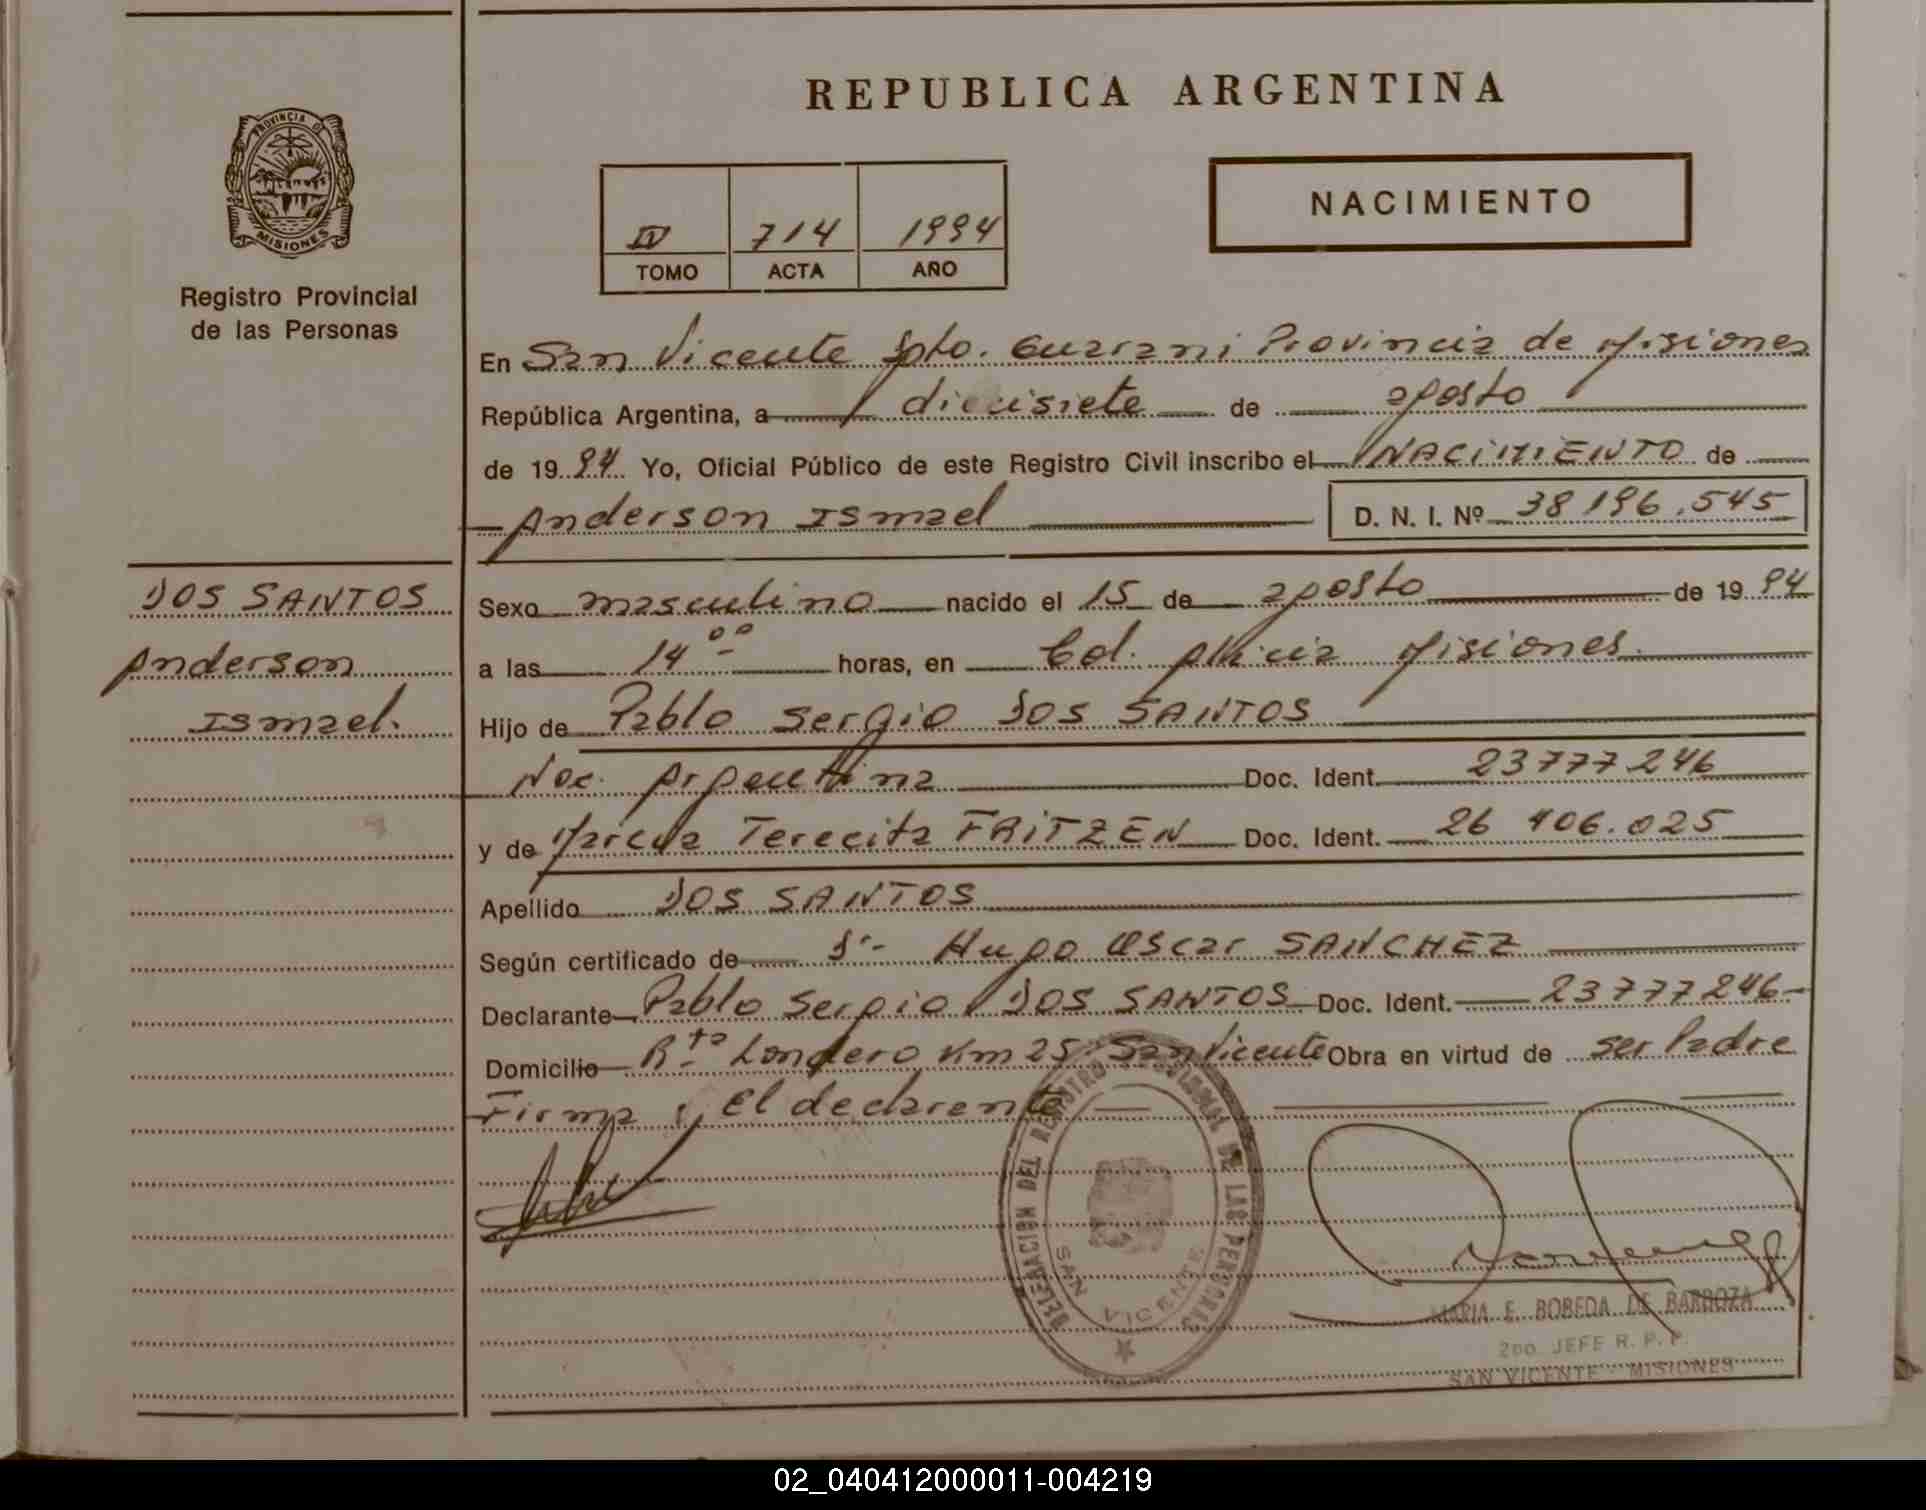 REPUBLICA ARGENTINA
PROVINCIA DE
MISIONES
Registro Provincial
de las Personas
IV 714 1994
TOMO ACTA AÑO
NACIMIENTO
En San Vicente Dpto. Guarani Provincia de Misiones
República Argentina, a diecisiete de agosto
de 19 94 Yo, Oficial Público de este Registro Civil inscribo el NACIMIENTO de
Anderson Ismael D. N. I. Nº 38 196.545
DOS SANTOS
Anderson
Ismael.
Sexo masculino nacido el 15 de agosto de 19 94
a las 14 ºº horas, en Col. Misiones.
Hijo de Pablo Sergio DOS SANTOS
Nac. Argentina Doc. Ident. 23777246
y de Terecita FRITZEN Doc. Ident. 26 406.025
Apellido DOS SANTOS
Según certificado de Hugo Oscar SANCHEZ
Declarante Pablo Sergio DOS SANTOS Doc. Ident. 23777246
Domicilio Rta Londero Km 25. San Vicente Obra en virtud de ser Padre
Firma: El declarante
DELEGACION DEL REGISTRO PROVINCIAL DE LAS PERSONAS
SAN VICENTE
MARIA E. BOBEDA DE BARBOZA
2DO. JEFE R. P. P.
SAN VICENTE - MISIONES
02_040412000011-004219